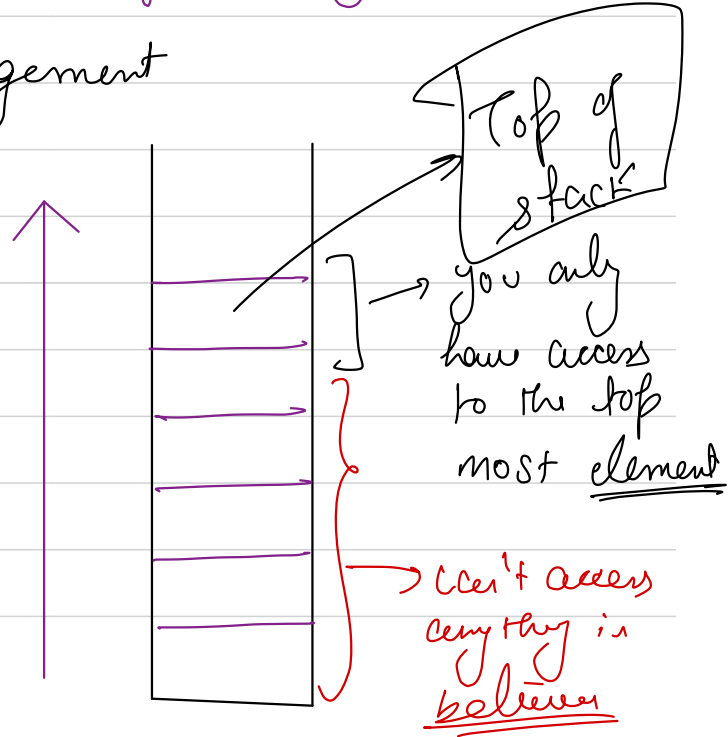 gement
Top of
stack
you only
have access
to the top
most element
can't access
anything in
between